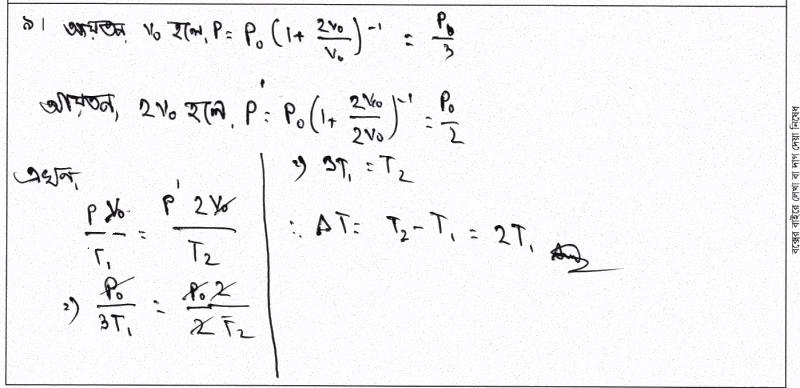 ৯। আয়তন V₀ হলে, P = P₀ (1 + 2V₀/V₀)⁻¹ = P₀/3
আয়তন, 2V₀ হলে, P' = P₀ (1 + 2V₀/2V₀)⁻¹ = P₀/2
এখন,
P V₀/T₁ = P' 2V₀/T₂
⇒) P₀/3T₁ = P₀ 2/2 T₂
⇒) 3T₁ = T₂
∴ ΔT = T₂ - T₁ = 2T₁ Ans
বক্সের বাইরে লেখা বা দাগ দেয়া নিষেধ